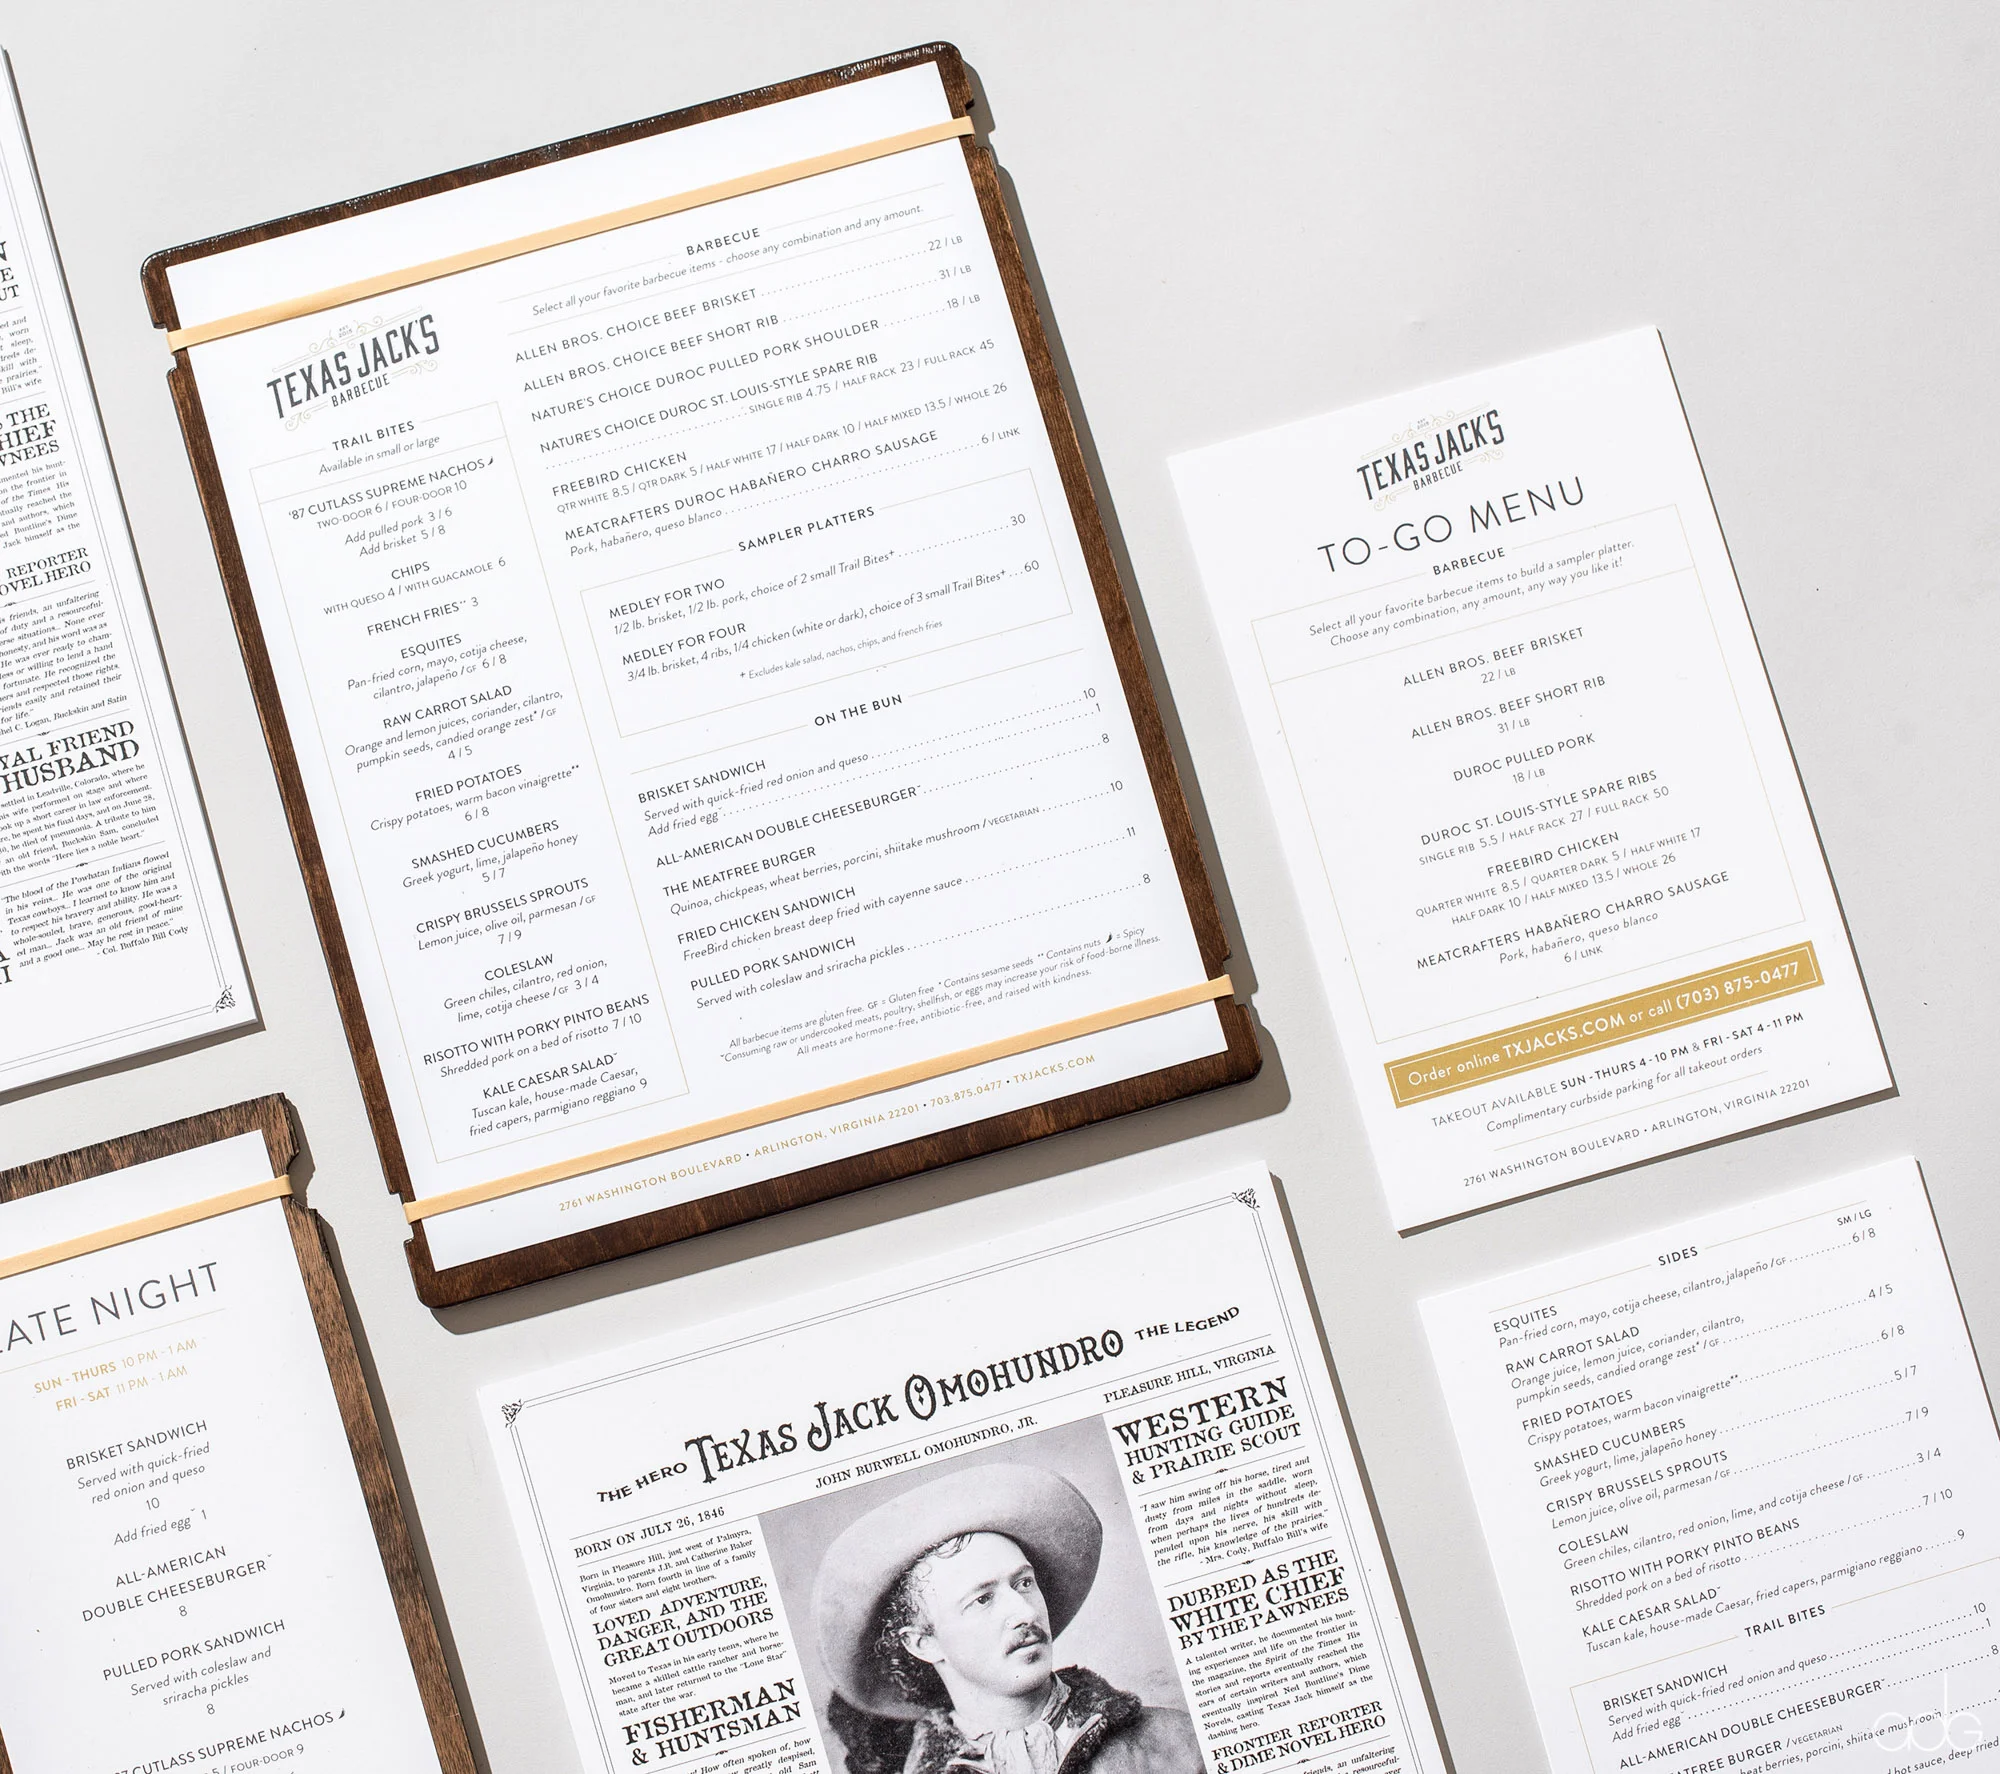 EST. 2015
TEXAS JACK'S
BARBECUE
TRAIL BITES
Available in small or large
'87 CUTLASS SUPREME NACHOS
TWO-DOOR 6 / FOUR-DOOR 10
Add pulled pork 3 / 6
Add brisket 5 / 8
CHIPS
WITH QUESO 4 / WITH GUACAMOLE 6
FRENCH FRIES** 3
ESQUITES
Pan-fried corn, mayo, cotija cheese,
cilantro, jalapeño / GF 6 / 8
RAW CARROT SALAD
Orange and lemon juices, coriander, cilantro,
pumpkin seeds, candied orange zest* / GF
4 / 5
FRIED POTATOES
Crispy potatoes, warm bacon vinaigrette**
6 / 8
SMASHED CUCUMBERS
Greek yogurt, lime, jalapeño honey
5 / 7
CRISPY BRUSSELS SPROUTS
Lemon juice, olive oil, parmesan / GF
7 / 9
COLESLAW
Green chiles, cilantro, red onion,
lime, cotija cheese / GF 3 / 4
RISOTTO WITH PORKY PINTO BEANS
Shredded pork on a bed of risotto 7 / 10
KALE CAESAR SALAD˜
Tuscan kale, house-made Caesar,
fried capers, parmigiano reggiano 9
BARBECUE
Select all your favorite barbecue items - choose any combination and any amount.
ALLEN BROS. CHOICE BEEF BRISKET 22 / LB
ALLEN BROS. CHOICE BEEF SHORT RIB 31 / LB
NATURE'S CHOICE DUROC PULLED PORK SHOULDER 18 / LB
NATURE'S CHOICE DUROC ST. LOUIS-STYLE SPARE RIB
SINGLE RIB 4.75 / HALF RACK 23 / FULL RACK 45
FREEBIRD CHICKEN
QTR WHITE 8.5 / QTR DARK 5 / HALF WHITE 17 / HALF DARK 10 / HALF MIXED 13.5 / WHOLE 26
MEATCRAFTERS DUROC HABAÑERO CHARRO SAUSAGE
Pork, habañero, queso blanco 6 / LINK
SAMPLER PLATTERS
MEDLEY FOR TWO 30
1/2 lb. brisket, 1/2 lb. pork, choice of 2 small Trail Bites+
MEDLEY FOR FOUR 60
3/4 lb. brisket, 4 ribs, 1/4 chicken (white or dark), choice of 3 small Trail Bites+
+ Excludes kale salad, nachos, chips, and french fries
ON THE BUN
BRISKET SANDWICH
Served with quick-fried red onion and queso 10
Add fried egg˜ 1
ALL-AMERICAN DOUBLE CHEESEBURGER˜ 8
THE MEATFREE BURGER
Quinoa, chickpeas, wheat berries, porcini, shiitake mushroom / VEGETARIAN 10
FRIED CHICKEN SANDWICH
FreeBird chicken breast deep fried with cayenne sauce 11
PULLED PORK SANDWICH
Served with coleslaw and sriracha pickles 8
All barbecue items are gluten free. GF = Gluten free * Contains sesame seeds ** Contains nuts = Spicy
˜Consuming raw or undercooked meats, poultry, shellfish, or eggs may increase your risk of food-borne illness.
All meats are hormone-free, antibiotic-free, and raised with kindness.
2761 WASHINGTON BOULEVARD • ARLINGTON, VIRGINIA 22201 • 703.875.0477 • TXJACKS.COM
EST. 2015
TEXAS JACK'S
BARBECUE
TO-GO MENU
BARBECUE
Select all your favorite barbecue items to build a sampler platter.
Choose any combination, any amount, any way you like it!
ALLEN BROS. BEEF BRISKET
22 / LB
ALLEN BROS. BEEF SHORT RIB
31 / LB
DUROC PULLED PORK
18 / LB
DUROC ST. LOUIS-STYLE SPARE RIBS
SINGLE RIB 5.5 / HALF RACK 27 / FULL RACK 50
FREEBIRD CHICKEN
QUARTER WHITE 8.5 / QUARTER DARK 5 / HALF WHITE 17
HALF DARK 10 / HALF MIXED 13.5 / WHOLE 26
MEATCRAFTERS HABAÑERO CHARRO SAUSAGE
Pork, habañero, queso blanco
6 / LINK
Order online TXJACKS.COM or call (703) 875-0477
TAKEOUT AVAILABLE SUN - THURS 4 - 10 PM & FRI - SAT 4 - 11 PM
Complimentary curbside parking for all takeout orders
2761 WASHINGTON BOULEVARD • ARLINGTON, VIRGINIA 22201
SM / LG
SIDES
ESQUITES
Pan-fried corn, mayo, cotija cheese, cilantro, jalapeño / GF 6 / 8
RAW CARROT SALAD
Orange juice, lemon juice, coriander, cilantro,
pumpkin seeds, candied orange zest* / GF 4 / 5
FRIED POTATOES
Crispy potatoes, warm bacon vinaigrette** 6 / 8
SMASHED CUCUMBERS
Greek yogurt, lime, jalapeño honey 5 / 7
CRISPY BRUSSELS SPROUTS
Lemon juice, olive oil, parmesan / GF 7 / 9
COLESLAW
Green chiles, cilantro, red onion, lime, and cotija cheese / GF 3 / 4
RISOTTO WITH PORKY PINTO BEANS
Shredded pork on a bed of risotto 7 / 10
KALE CAESAR SALAD˜
Tuscan kale, house-made Caesar, fried capers, parmigiano reggiano 9
TRAIL BITES
BRISKET SANDWICH
Served with quick-fried red onion and queso 10
Add fried egg˜ 1
ALL-AMERICAN DOUBLE CHEESEBURGER˜ 8
BURGER / VEGETARIAN
berries, porcini, shiitake mushroom
hot sauce, deep fried
adg
LATE NIGHT
SUN - THURS 10 PM - 1 AM
FRI - SAT 11 PM - 1 AM
BRISKET SANDWICH
Served with quick-fried
red onion and queso
10
Add fried egg˜ 1
ALL-AMERICAN
DOUBLE CHEESEBURGER˜
8
PULLED PORK SANDWICH
Served with coleslaw and
sriracha pickles
8
CUTLASS SUPREME NACHOS
/ FOUR-DOOR 9
THE HERO TEXAS JACK OMOHUNDRO THE LEGEND
BORN ON JULY 26, 1846
JOHN BURWELL OMOHUNDRO, JR.
PLEASURE HILL, VIRGINIA
Born in Pleasure Hill, just west of Palmyra,
Virginia, to parents J.B. and Catherine Baker
Omohundro. Born fourth in line of a family
of four sisters and eight brothers.
LOVED ADVENTURE,
DANGER, AND THE
GREAT OUTDOORS
Moved to Texas in his early teens, where he
became a skilled cattle rancher and horse-
man, and later returned to the "Lone Star"
state after the war.
FISHERMAN
& HUNTSMAN
How often spoken of, how
greatly despised,
old Sam
WESTERN
HUNTING GUIDE
& PRAIRIE SCOUT
"I saw him swing off his horse, tired and
dusty from miles in the saddle, worn
from days and nights without sleep,
when perhaps the lives of hundreds de-
pended upon his nerve, his skill with
the rifle, his knowledge of the prairies."
- Mrs. Cody, Buffalo Bill's wife
DUBBED AS THE
WHITE CHIEF
BY THE PAWNEES
A talented writer, he documented his hunt-
ing experiences and life on the frontier in
the magazine, the Spirit of the Times. His
stories and reports eventually reached the
ears of certain writers and authors, which
eventually inspired Ned Buntline's Dime
Novels, casting Texas Jack himself as the
dashing hero.
FRONTIER REPORTER
& DIME NOVEL HERO
friends, an unfaltering
resourceful-
THE
CHIEF
PAWNEES
REPORTER
NOVEL HERO
friends, an unfaltering
of duty and a resourceful-
situations... None ever
honesty, and his word was as
He was ever ready to cham-
or willing to lend a hand
fortunate. He recognized the
and respected those rights.
friends easily and retained their
for life."
C. Logan, Buckskin and Satin
LOYAL FRIEND
HUSBAND
settled in Leadville, Colorado, where he
his wife performed on stage and where
took up a short career in law enforcement.
he spent his final days, and on June 28,
he died of pneumonia. A tribute to him
an old friend, Buckskin Sam, concluded
with the words "Here lies a noble heart."
"The blood of the Powhatan Indians flowed
in his veins... He was one of the original
Texas cowboys... I learned to know him and
to respect his bravery and ability. He was a
whole-souled, brave, generous, good-heart-
ed man... Jack was an old friend of mine
and a good one... May he rest in peace."
- Col. Buffalo Bill Cody